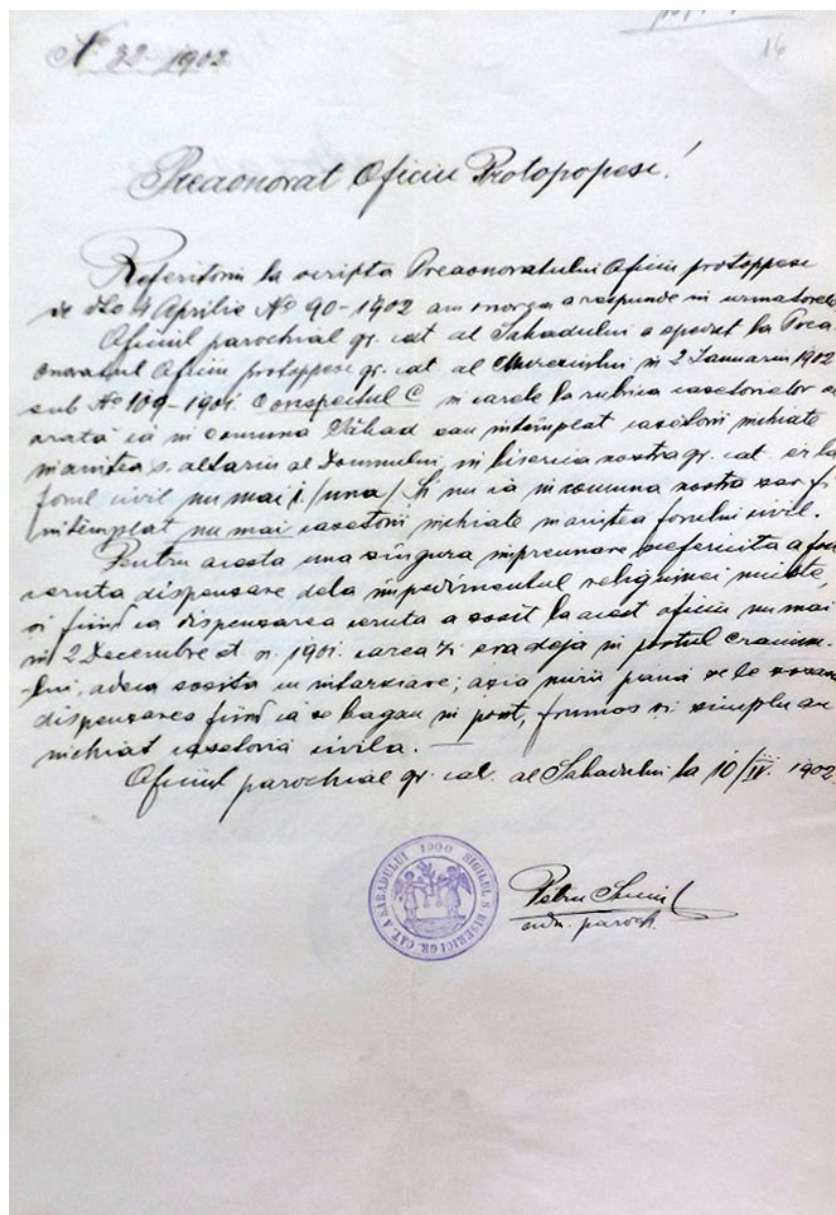 Nº 32-1902
16
Preaonorat Oficiu Protopopesc!
Referitoriu la scripta Preaonoratului Oficiu protoppesc
de dto 4 Aprilie Nº 90-1902 am onoarea a respunde in urmatorele
Oficiul parochial gr. cat al Sabadului a spedat la Prea
onoratul Oficiu protoppesc gr. cat. al in 2 Ianuariu 1902
sub Nº 109-1901. Conspectul C in carele la rubrica casetorielor se
arată că in Comuna Săbad sau intêmplat casetorii inchiate
inaintea s. altariu al Domnului in biserica nostra gr. cat. er la
forul civil nu mai 1. /una/ Si nu că in comuna nostra sar fi
intêmplat nu mai casetorii inchiate inaintea forului civil.
Pentru acesta una singura impreunare nefericita a fost
ceruta dispensare dela impedimentul religiunei mixte,
si fiind ca dispensarea ceruta a sosit la acest oficiu nu mai
in 2 Decembre st. n. 1901. carea zi era deja in postul Craciun-
-lui, adeca sosita cu intarziare; asia mirii pana se le
dispensarea fiind că se bagau in post, frumos si simplu au
inchiat casetoria civila. —
Oficiul parochial gr. cat. al Sabadului la 10/IV. 1902
SIGILUL S BISERICI GR. CAT. A SABADULUI 1900
Petru
adm. paroch.